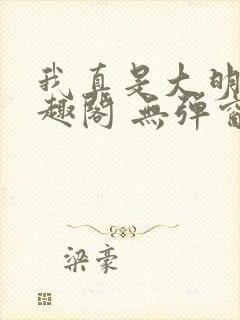 我真是大明
趣阁 無弹窗
梁豪